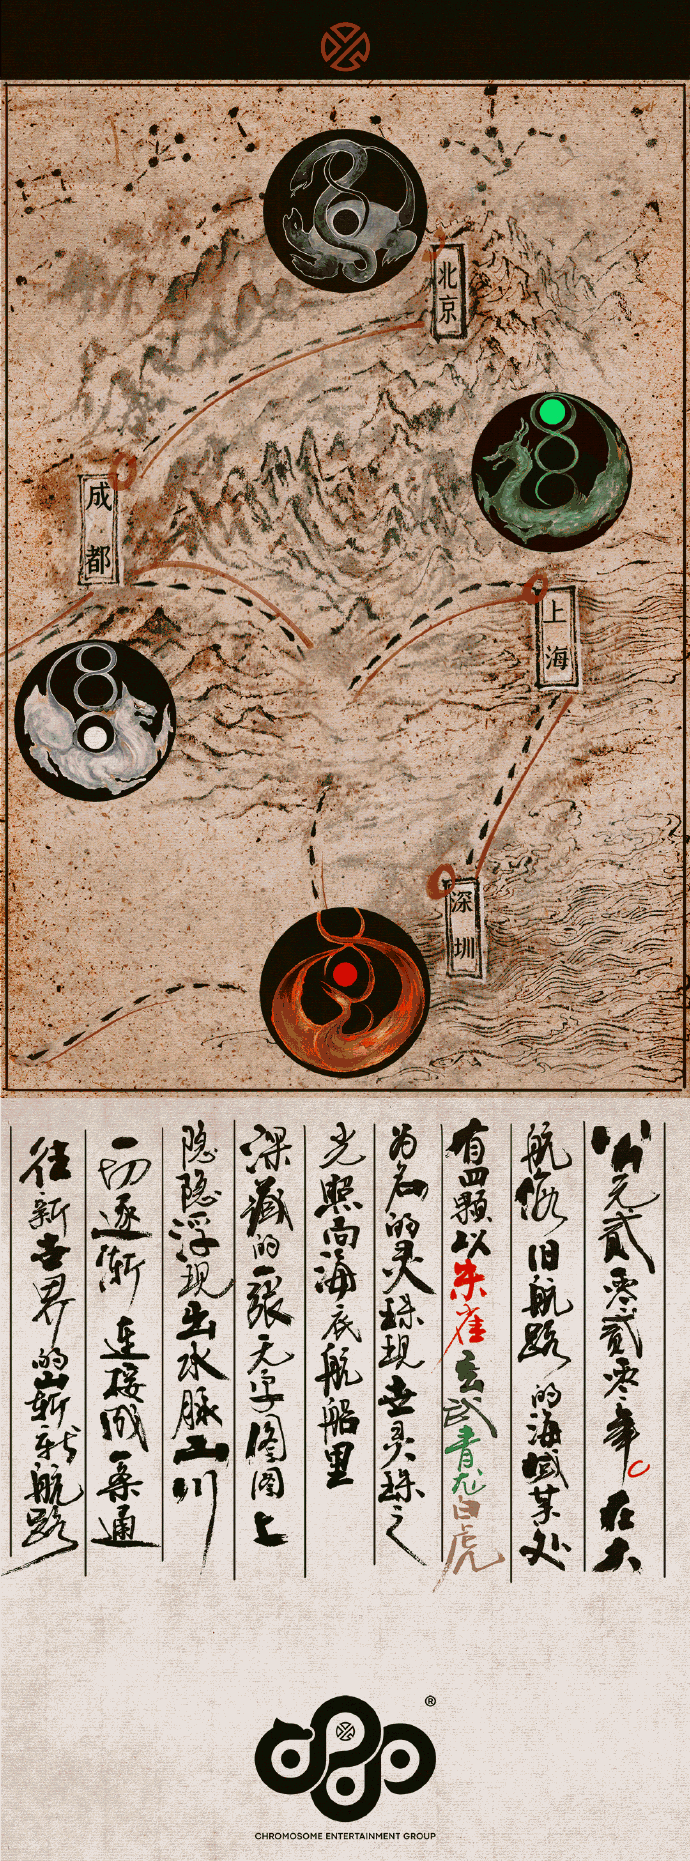 北京
成都
上海
深圳
公元贰零贰零年 在大
航海旧航路的海域某处
有四颗以朱雀玄武青龙白虎
为名的灵珠现世灵珠之
光照向海底航船里
深藏的一张无字图图上
隐隐浮现出水脉山川
一切逐渐连接成一条通
往新世界的崭新航路
®
CHROMOSOME ENTERTAINMENT GROUP